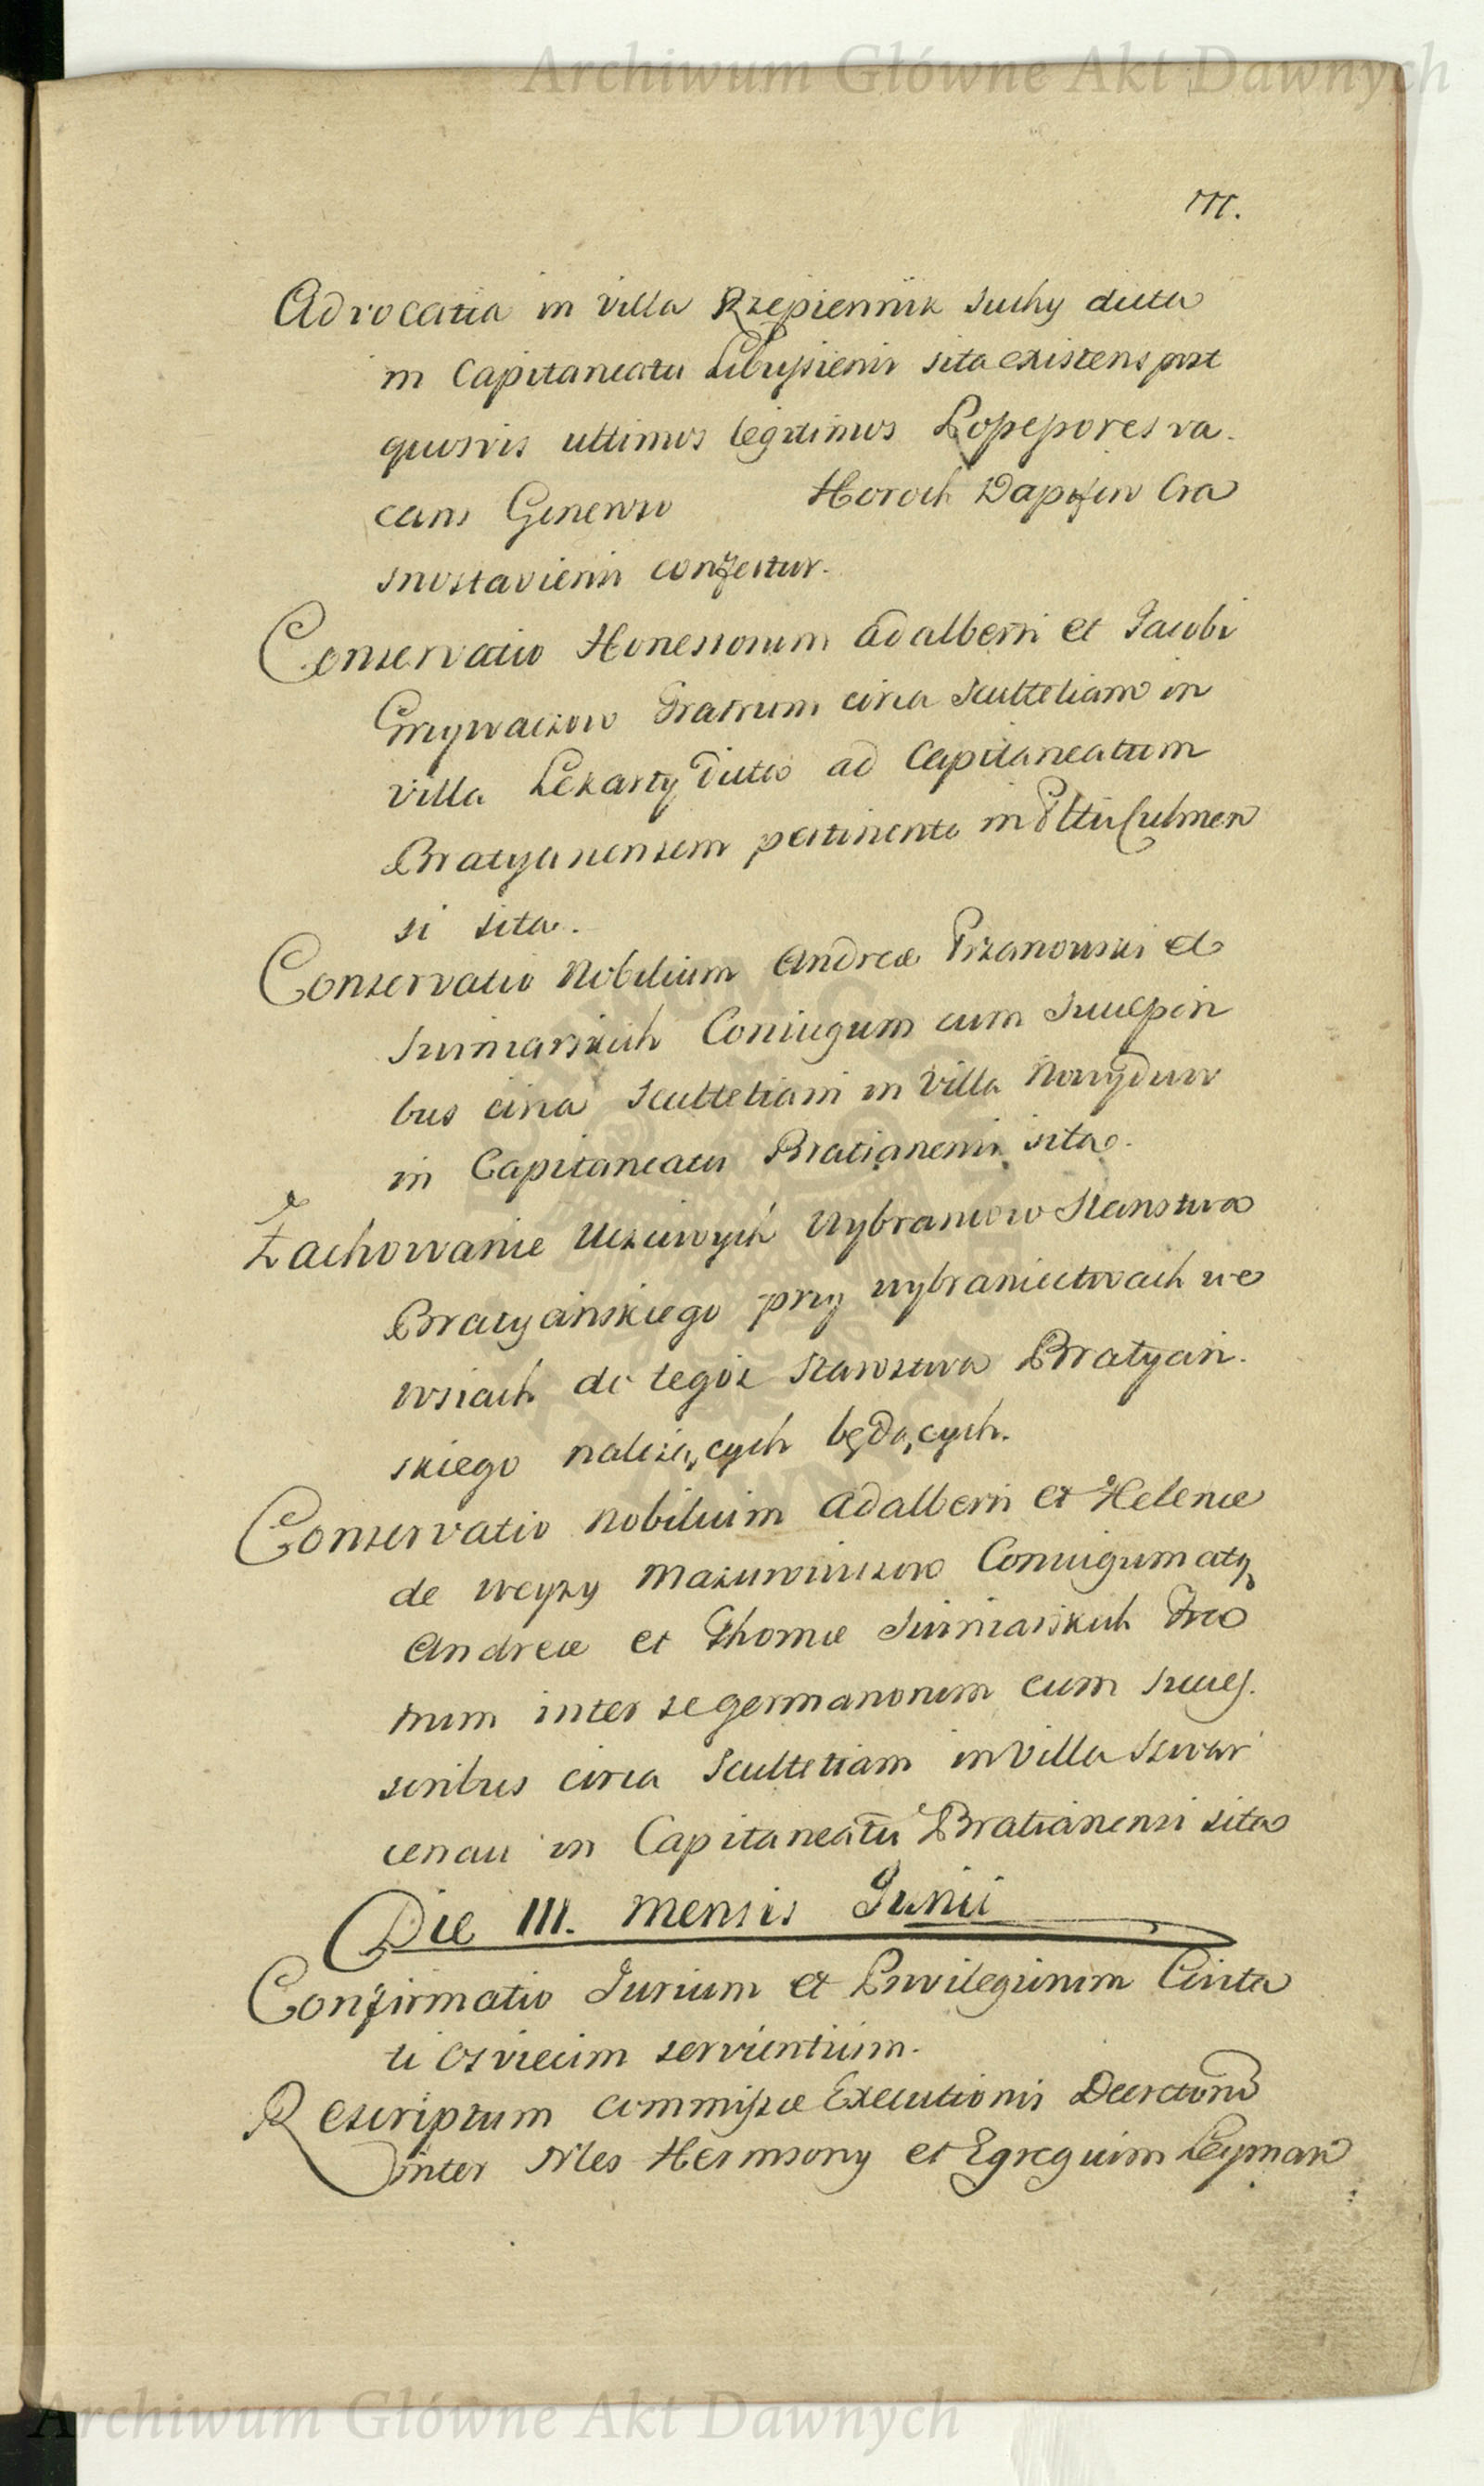 Archiwum Główne Akt Dawnych
111.
Advocatia in Villa Rzepiennik Suchy dicta
in Capitaneatu Libusiensi sita existens post
quosvis ultimos legitimos Possessores va-
cans Generoso Horoch Dapifero Cra
snostaviensi confertur.
Conservatio Honestorum Adalberti et Jacobi
Grzywaczow Fratrum circa Scultetiam in
villa Lekarty dicta ad Capitaneatum
Bratyanensem pertinente in Pltu Culmen
si sita.
Conservatio Nobilium Andreæ Przanowski et
Suiniarskich Coniugum cum Succesori
bus circa Scultetiam in Villa Nowydwor
in Capitaneatu Bratianensi sita.
Zachowanie Uczciwych Wybrancow Starostwa
Bratyańskiego przy wybraniectwach we
wsiach do tegoż Starostwa Bratyań-
skiego należących będących.
Conservatio Nobilium Adalberti et Helenæ
de Weyzy Coniugum atq
Andreæ et Thomæ Suiniarskich Fra
trum inter se germanorum cum Succes-
soribus circa Scultetiam in Villa Szwar
cenau in Capitaneatu Bratianensi sita
Die III. Mensis Junii
Confirmatio Jurium et Privilegiorum Civita
ti Osviecim servientium.
Rescriptum Commissæ Executionis Decretorum
inter Nles Hermsony et Egregium Leyman
Archiwum Główne Akt Dawnych